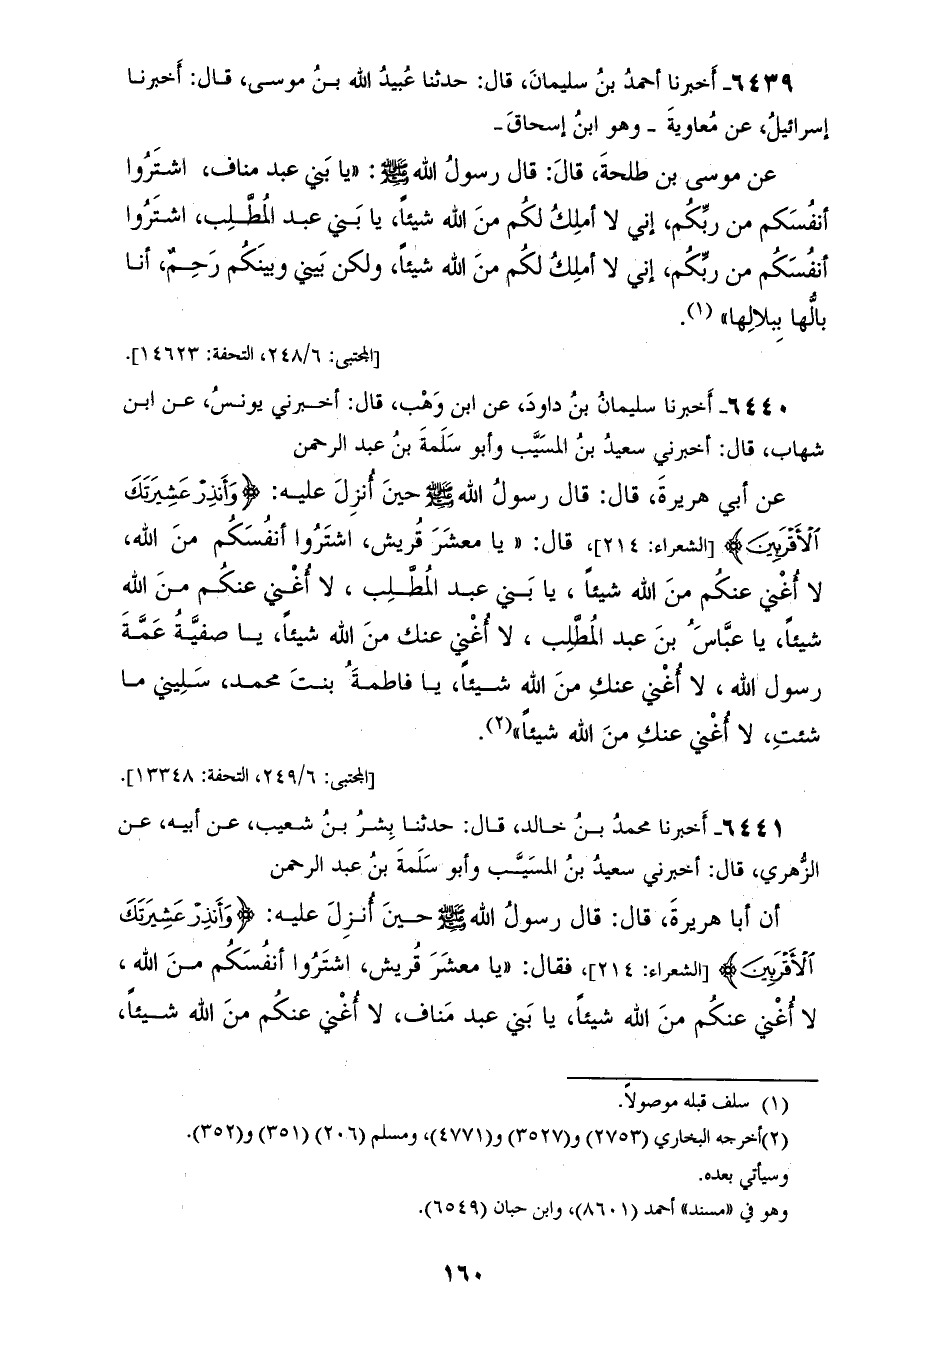 ٦٤٣٩ـ أَخبرنا أحمدُ بنُ سليمانَ، قال: حدثنا عُبيدُ الله بـنُ موسـى، قـال: أَخبرنـا
إسرائيلُ، عن مُعاويةَ ـ وهو ابنُ إسحاقَ ـ
عن موسى بن طلحةَ، قالَ: قال رسولُ الله ﷺ: «يا بَني عبد مناف، اشـتَرُوا
أنفُسَكم من ربِّكُم، إني لا أملِكُ لكُم منَ الله شيئاً، يا بَـني عبـد المُطَّـلِب، اشـتَرُوا
أنفُسَكم من ربِّكُم، إني لا أملِكُ لكُم منَ الله شيئاً، ولكن بَيني وبينَكُم رَحِـمٌ، أنـا
بالُّها بِبلالِها» (١).
[المجتبى: ٢٤٨/٦، التحفة: ١٤٦٢٣].
٦٤٤٠ـ أَخبرنا سليمانُ بنُ داودَ، عن ابن وَهْب، قال: أخـبرني يونـسُ، عـن ابـن
شهاب، قال: أخبرني سعيدُ بنُ المسَيَّب وأبو سَلَمةَ بنُ عبد الرحمن
عن أبي هريرةَ، قال: قال رسولُ الله ﷺ حينَ أُنزِلَ عليـه: ﴿وَأَنذِرْ عَشِيرَتَكَ
ٱلْأَقْرَبِينَ﴾ [الشعراء: ٢١٤]، قال: « يا معشَرَ قُريش، اشتَرُوا أنفُسَكُم منَ الله،
لا أُغْني عنكُم منَ الله شيئاً ، يا بَـني عبـد المُطَّـلِب ، لا أُغْـني عنكُـم مـنَ الله
شيئاً، يا عبَّاسَُ بنَ عبد المُطَّلِب ، لا أُغْني عنك منَ الله شيئاً، يـا صفيَّةُ عَمَّـةَ
رسول الله ، لا أُغْني عنكِ منَ الله شـيئاً، يـا فاطمةَُ بنـتَ محمـد، سَـلِيني مـا
شئتِ، لا أُغْني عنكِ منَ الله شيئاً»(٢).
[المجتبى: ٢٤٩/٦، التحفة: ١٣٣٤٨].
٦٤٤١ـ أَخبرنا محمدُ بـنُ خـالد، قـال: حدثنـا بِشـرُ بـنُ شـعيب، عـن أبيـه، عـن
الزُّهري، قال: أخبرني سعيدُ بنُ المسَيَّـب وأبو سَلَمةَ بنُ عبد الرحمن
أن أبا هريرةَ، قال: قال رسولُ الله ﷺ حـينَ أُنـزِلَ عليـه: ﴿وَأَنذِرْ عَشِيرَتَكَ
ٱلْأَقْرَبِينَ﴾ [الشعراء: ٢١٤]، فقال: «يا معشَـرَ قُريش، اشتَرُوا أنفُسَكُم مـنَ الله ،
لا أُغْني عنكُم منَ الله شيئاً، يا بَني عبد مَناف، لا أُغْني عنكُم منَ الله شـيئاً،
(١) سلف قبله موصولاً.
(٢)أخرجه البخاري (٢٧٥٣) و(٣٥٢٧) و(٤٧٧١)، ومسلم (٢٠٦) (٣٥١) و(٣٥٢).
وسيأتي بعده.
وهو في «مسند» أحمد (٨٦٠١)، وابن حبان (٦٥٤٩).
١٦٠